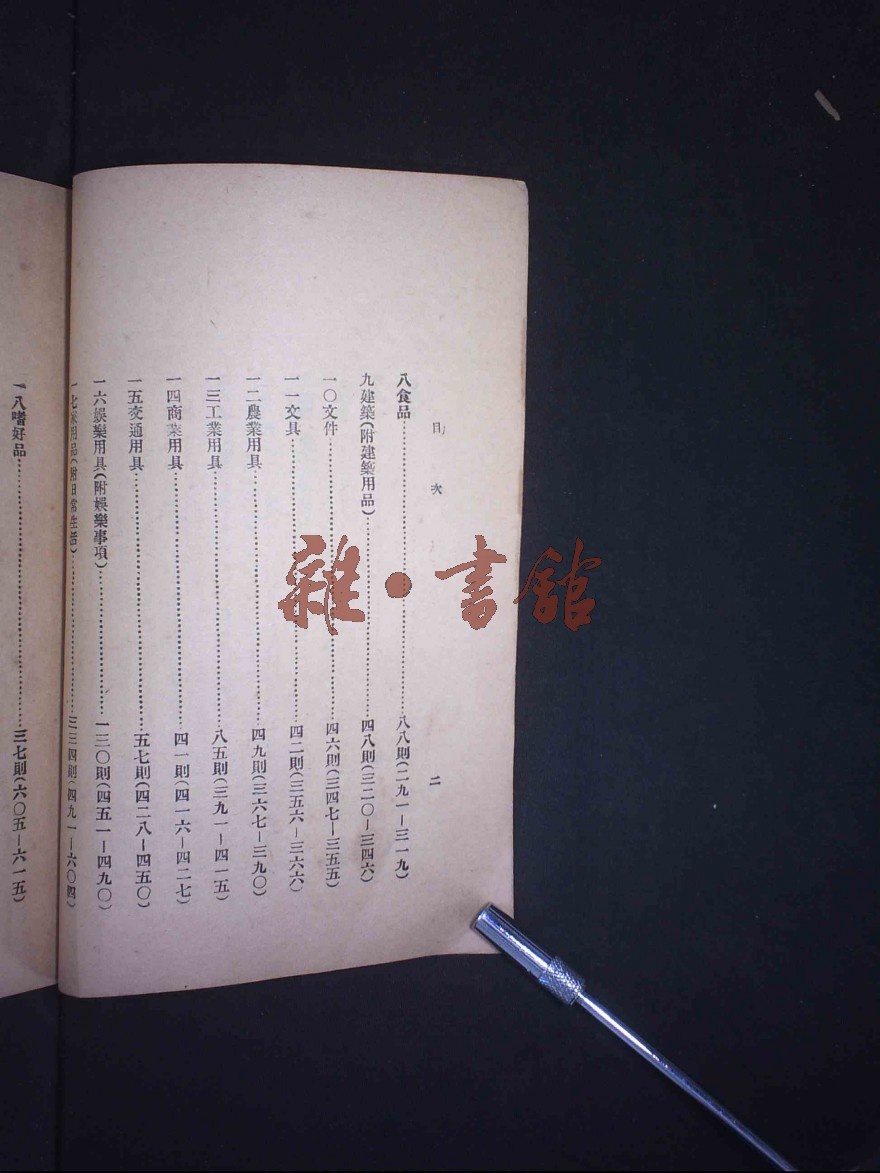 目次
二
八食品……八八則(二九一—三一九)
九建築(附建築用品)……四八則(三二〇—三四六)
一〇文件……四六則(三四七—三五五)
一一文具……四二則(三五六—三六六)
一二農業用具……四九則(三六七—三九〇)
一三工業用具……八五則(三九一—四一五)
一四商業用具……四一則(四一六—四二七)
一五交通用具……五七則(四二八—四五〇)
一六娛樂用具(附娛樂事項)……一三〇則(四五一—四九〇)
一七家用品(附日常生活)……三三四則(四九一—六〇四)
一八嗜好品……三七則(六〇五—六一五)
雜·書館